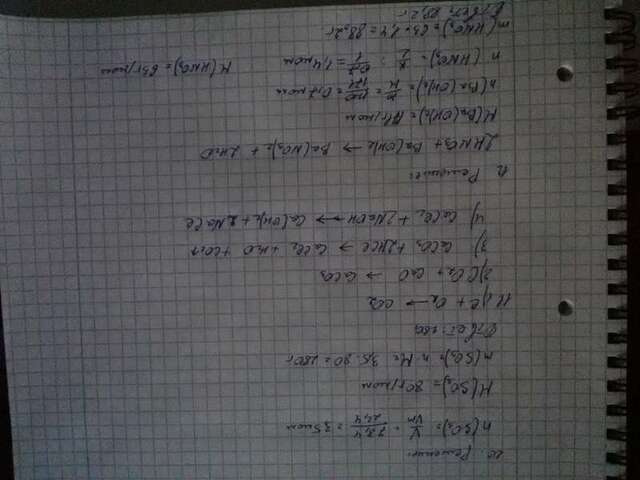 10. Решение:
n(SO3) = V/Vm = 78,4/22,4 = 3,5 моль
M(SO3) = 80 г/моль
m(SO3) = n · M = 3,5 · 80 = 280 г
Ответ: 280
11. 1) C + O2 → CO2
2) CO2 + CaO → CaCO3
3) CaCO3 + 2HCl → CaCl2 + H2O + CO2↑
4) CaCl2 + 2NaOH → Ca(OH)2 + 2NaCl
Решение:
2HNO3 + Ba(OH)2 → Ba(NO3)2 + 2H2O
M(Ba(OH)2) = г/моль
n(Ba(OH)2) = m/M = = 0,7 моль
n(HNO3) = = 1,4 моль M(HNO3) = 63 г/моль
m(HNO3) = 63 · 1,4 = 88,2 г
Ответ: 88,2 г